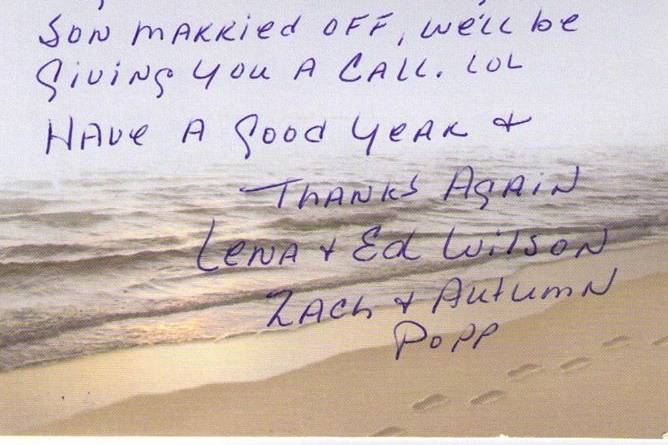 Son married off, we'll be
giving you a call. LOL
Have a good year +
Thanks Again
Lena + Ed Wilson
Zach + Autumn
Popp